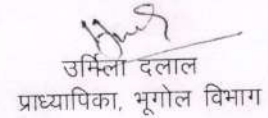 उर्मिला दलाल
प्राध्यापिका, भूगोल विभाग